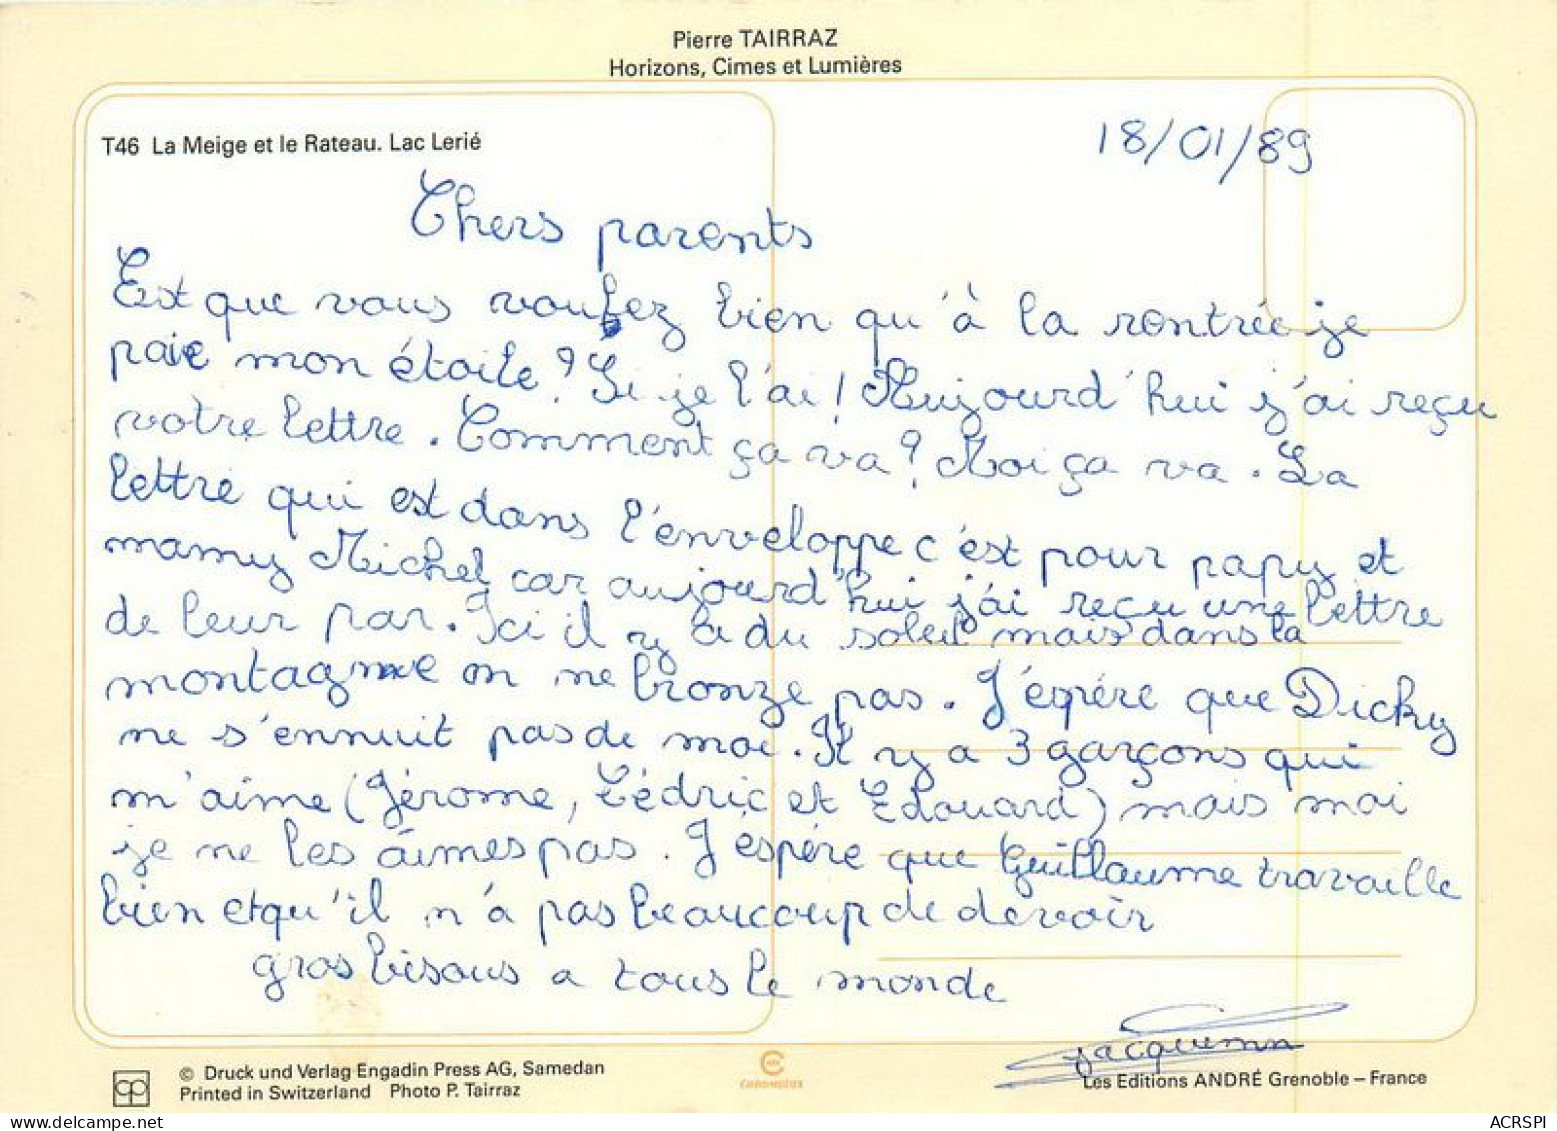 Pierre TAIRRAZ
Horizons, Cimes et Lumières
T46 La Meige et le Rateau. Lac Lerié
18/01/89
Chers parents
Est que vous voulez bien qu'à la rentrée je
paie mon étoile? Si je l'ai! Aujourd'hui j'ai reçu
votre lettre. Comment ça va? Moi ça va. La
lettre qui est dans l'enveloppe c'est pour papy et
mamy Michel car aujourd'hui j'ai reçu une lettre
de leur par. Ici il y a du soleil mais dans la
montagne on ne bronze pas. J'espére que Dicky
ne s'ennuit pas de moi. Il y a 3 garçons qui
m'aime (Jérome, Cédric et Edouard) mais moi
je ne les aimes pas. J'éspére que Guillaume travaille
bien et qu'il n'a pas beaucoup de devoir
gros bisous a tous le monde
Jacquemin
© Druck und Verlag Engadin Press AG, Samedan
Printed in Switzerland Photo P. Tairraz
Les Editions ANDRÉ Grenoble – France
ACRSPI